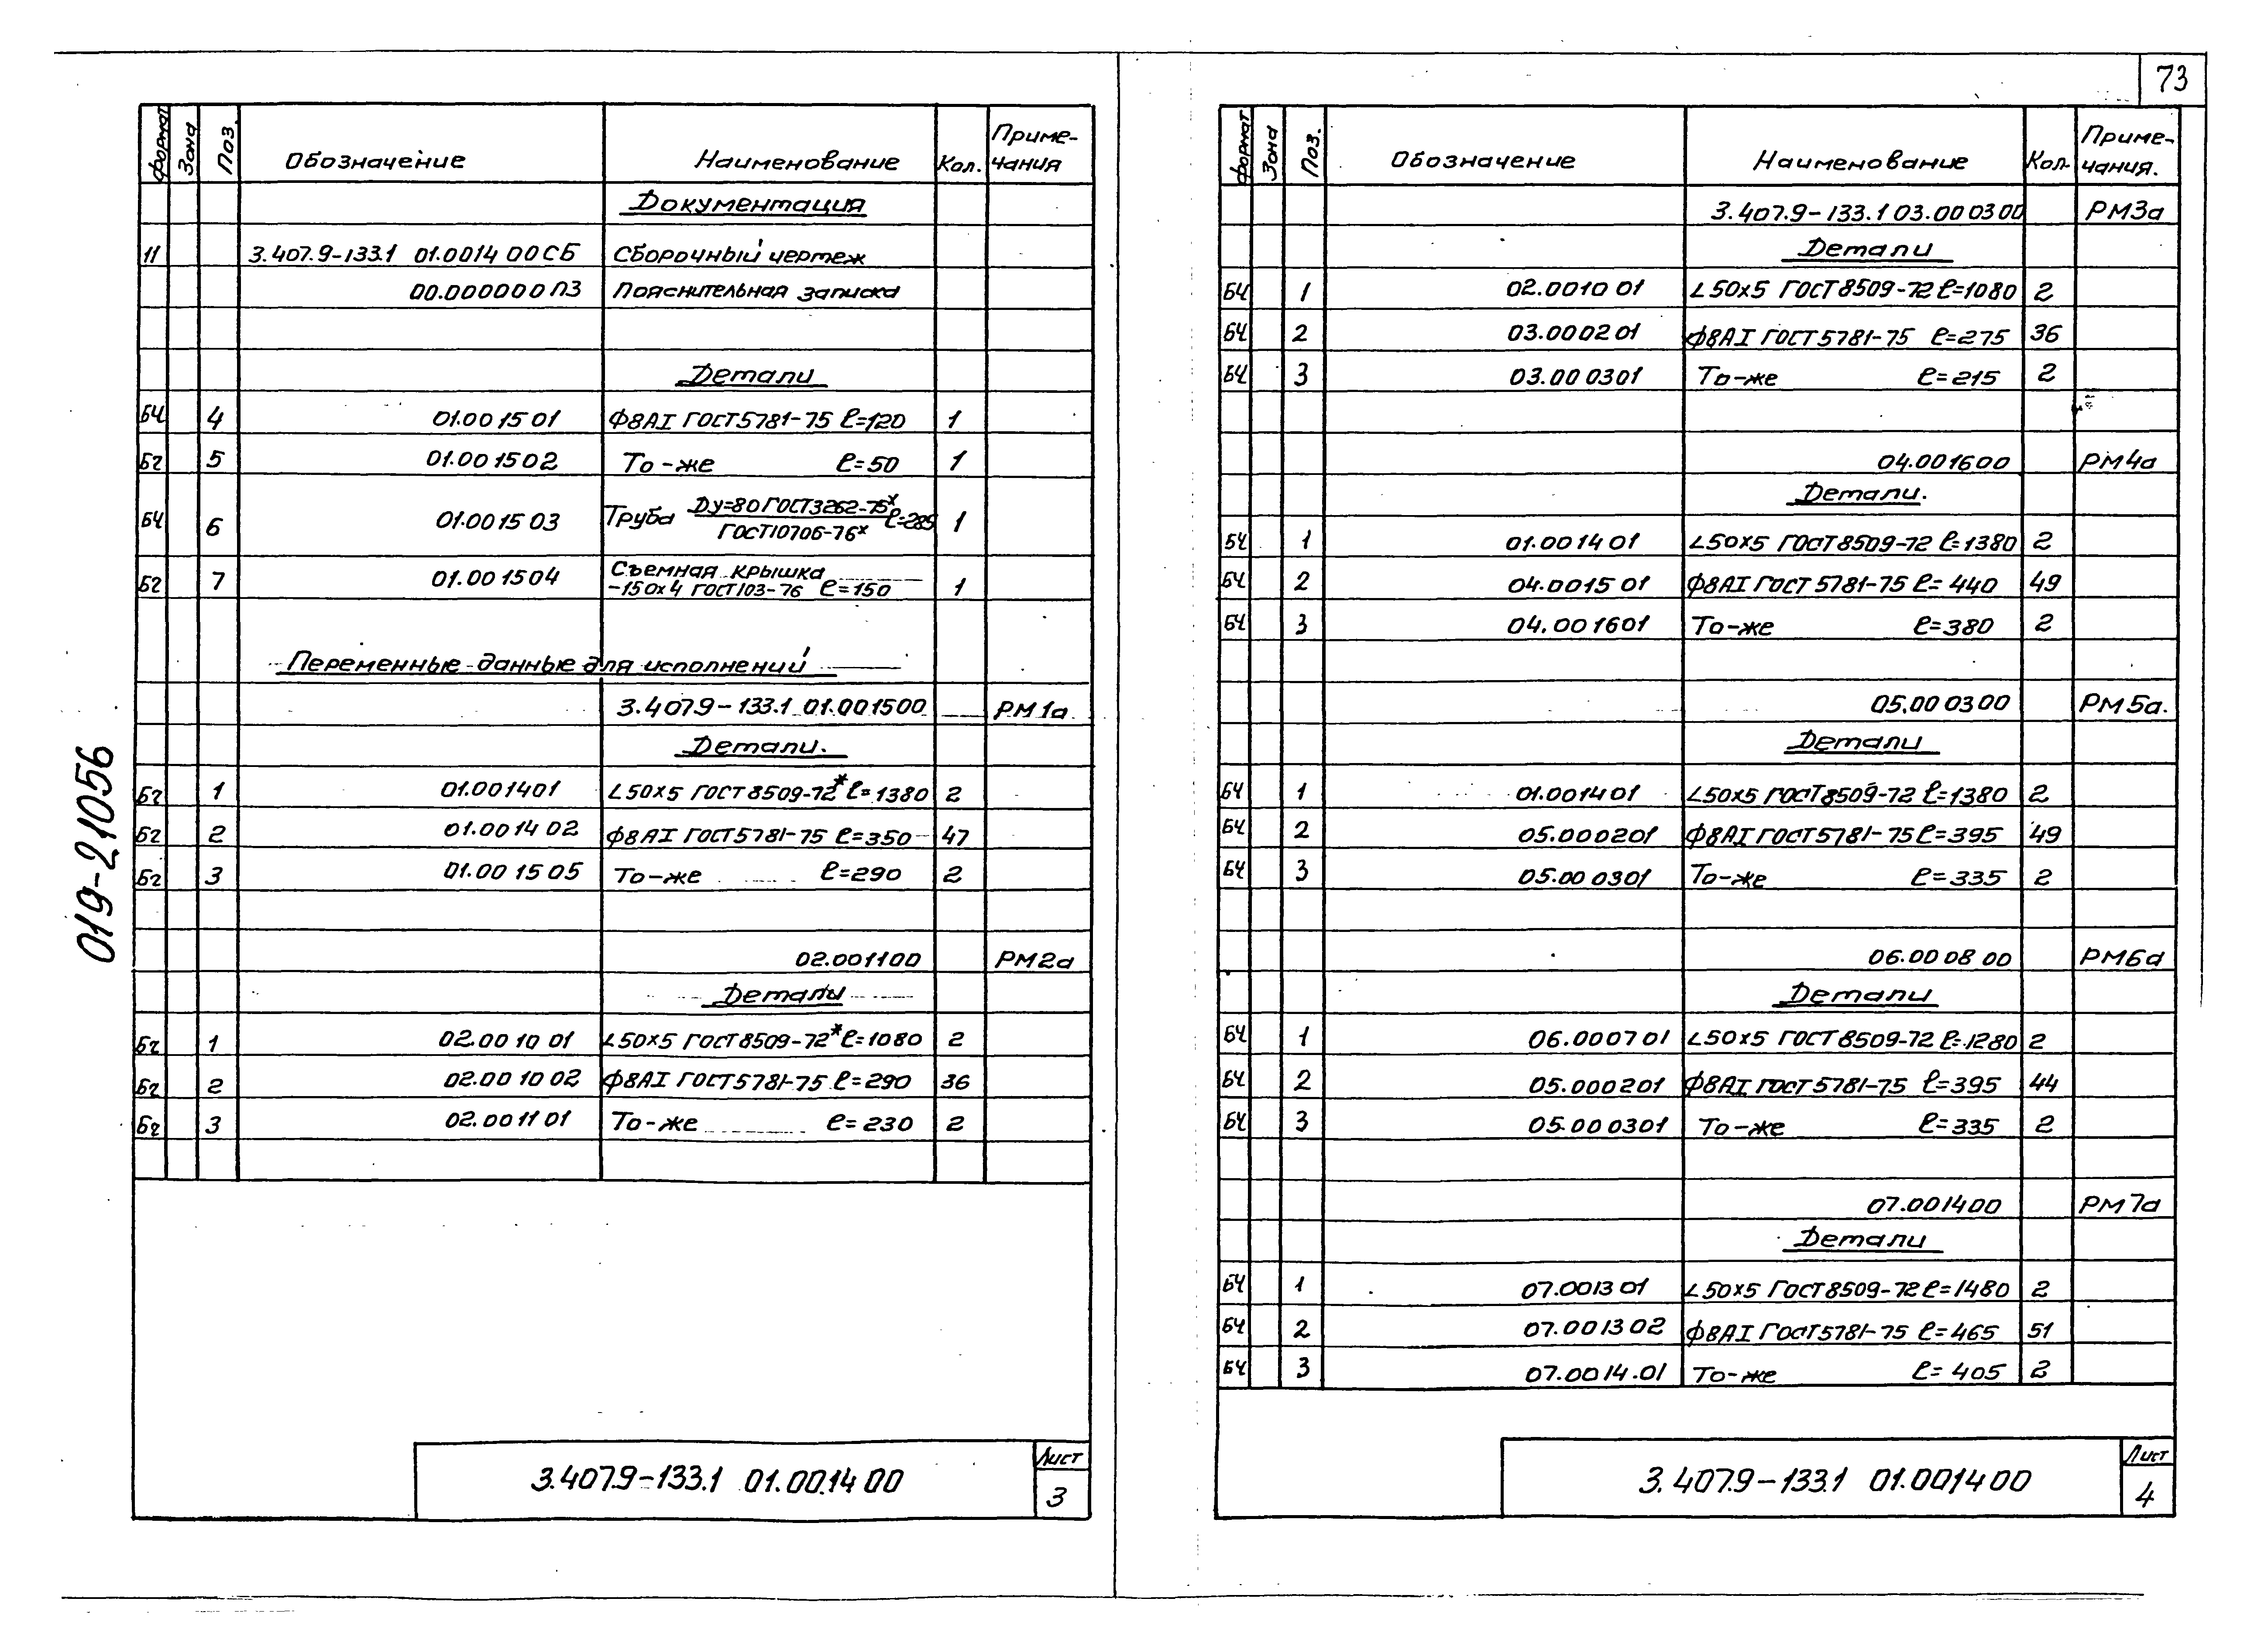 73
019-21056
Формат Зона Поз. Обозначение Наименование Кол. Приме-
чания
Документация
11 3.407.9-133.1 01.0014 00СБ Сборочный чертеж
00.000000 ПЗ Пояснительная записка
Детали
БЧ 4 01.00 15 01 Ф8АI ГОСТ 5781-75 ℓ=120 1
БЧ 5 01.00 1502 То-же ℓ=50 1
БЧ 6 01.00 15 03 Труба Ду=80 ГОСТ3262-75ˣ ℓ=285 1
ГОСТ10706-76ˣ
БЧ 7 01.00 1504 Съемная крышка
-150х4 ГОСТ103-76 ℓ=150 1
Переменные данные для исполнений
3.407.9-133.1 01.001500 РМ1а
Детали.
БЧ 1 01.001401 L50х5 ГОСТ 8509-72* ℓ=1380 2
БЧ 2 01.0014 02 Ф8АI ГОСТ 5781-75 ℓ=350 47
БЧ 3 01.00 15 05 То-же ℓ=290 2
02.001100 РМ2а
Детали
БЧ 1 02.00 10 01 L50х5 ГОСТ8509-72* ℓ=1080 2
БЧ 2 02.00 10 02 Ф8АI ГОСТ5781-75 ℓ=290 36
БЧ 3 02.0011 01 То-же ℓ=230 2
3.407.9-133.1 01.00.14 00
Лист
3
Формат Зона Поз. Обозначение Наименование Кол. Приме-
чания.
3.407.9-133.1 03.00 03 00 РМ3а
Детали
БЧ 1 02.0010 01 L50х5 ГОСТ8509-72 ℓ=1080 2
БЧ 2 03.000201 Ф8АI ГОСТ5781-75 ℓ=275 36
БЧ 3 03.00 0301 То-же ℓ=215 2
04.001600 РМ4а
Детали.
БЧ 1 01.001401 L50х5 ГОСТ8509-72 ℓ=1380 2
БЧ 2 04.0015 01 Ф8АI ГОСТ 5781-75 ℓ=440 49
БЧ 3 04.001601 То-же ℓ=380 2
05.00 03 00 РМ5а.
Детали
БЧ 1 01.001401 L50х5 ГОСТ8509-72 ℓ=1380 2
БЧ 2 05.000201 Ф8АI ГОСТ5781-75 ℓ=395 49
БЧ 3 05.00 0301 То-же ℓ=335 2
06.00 08 00 РМ6а
Детали
БЧ 1 06.0007 01 L50х5 ГОСТ 8509-72 ℓ=1280 2
БЧ 2 05.000201 Ф8АI ГОСТ 5781-75 ℓ=395 44
БЧ 3 05.00 0301 То-же ℓ=335 2
07.001400 РМ7а
Детали
БЧ 1 07.0013 01 L50х5 ГОСТ8509-72 ℓ=1480 2
БЧ 2 07.0013 02 Ф8АI ГОСТ5781-75 ℓ=465 51
БЧ 3 07.0014.01 То-же ℓ=405 2
3.407.9-133.1 01.001400
Лист
4